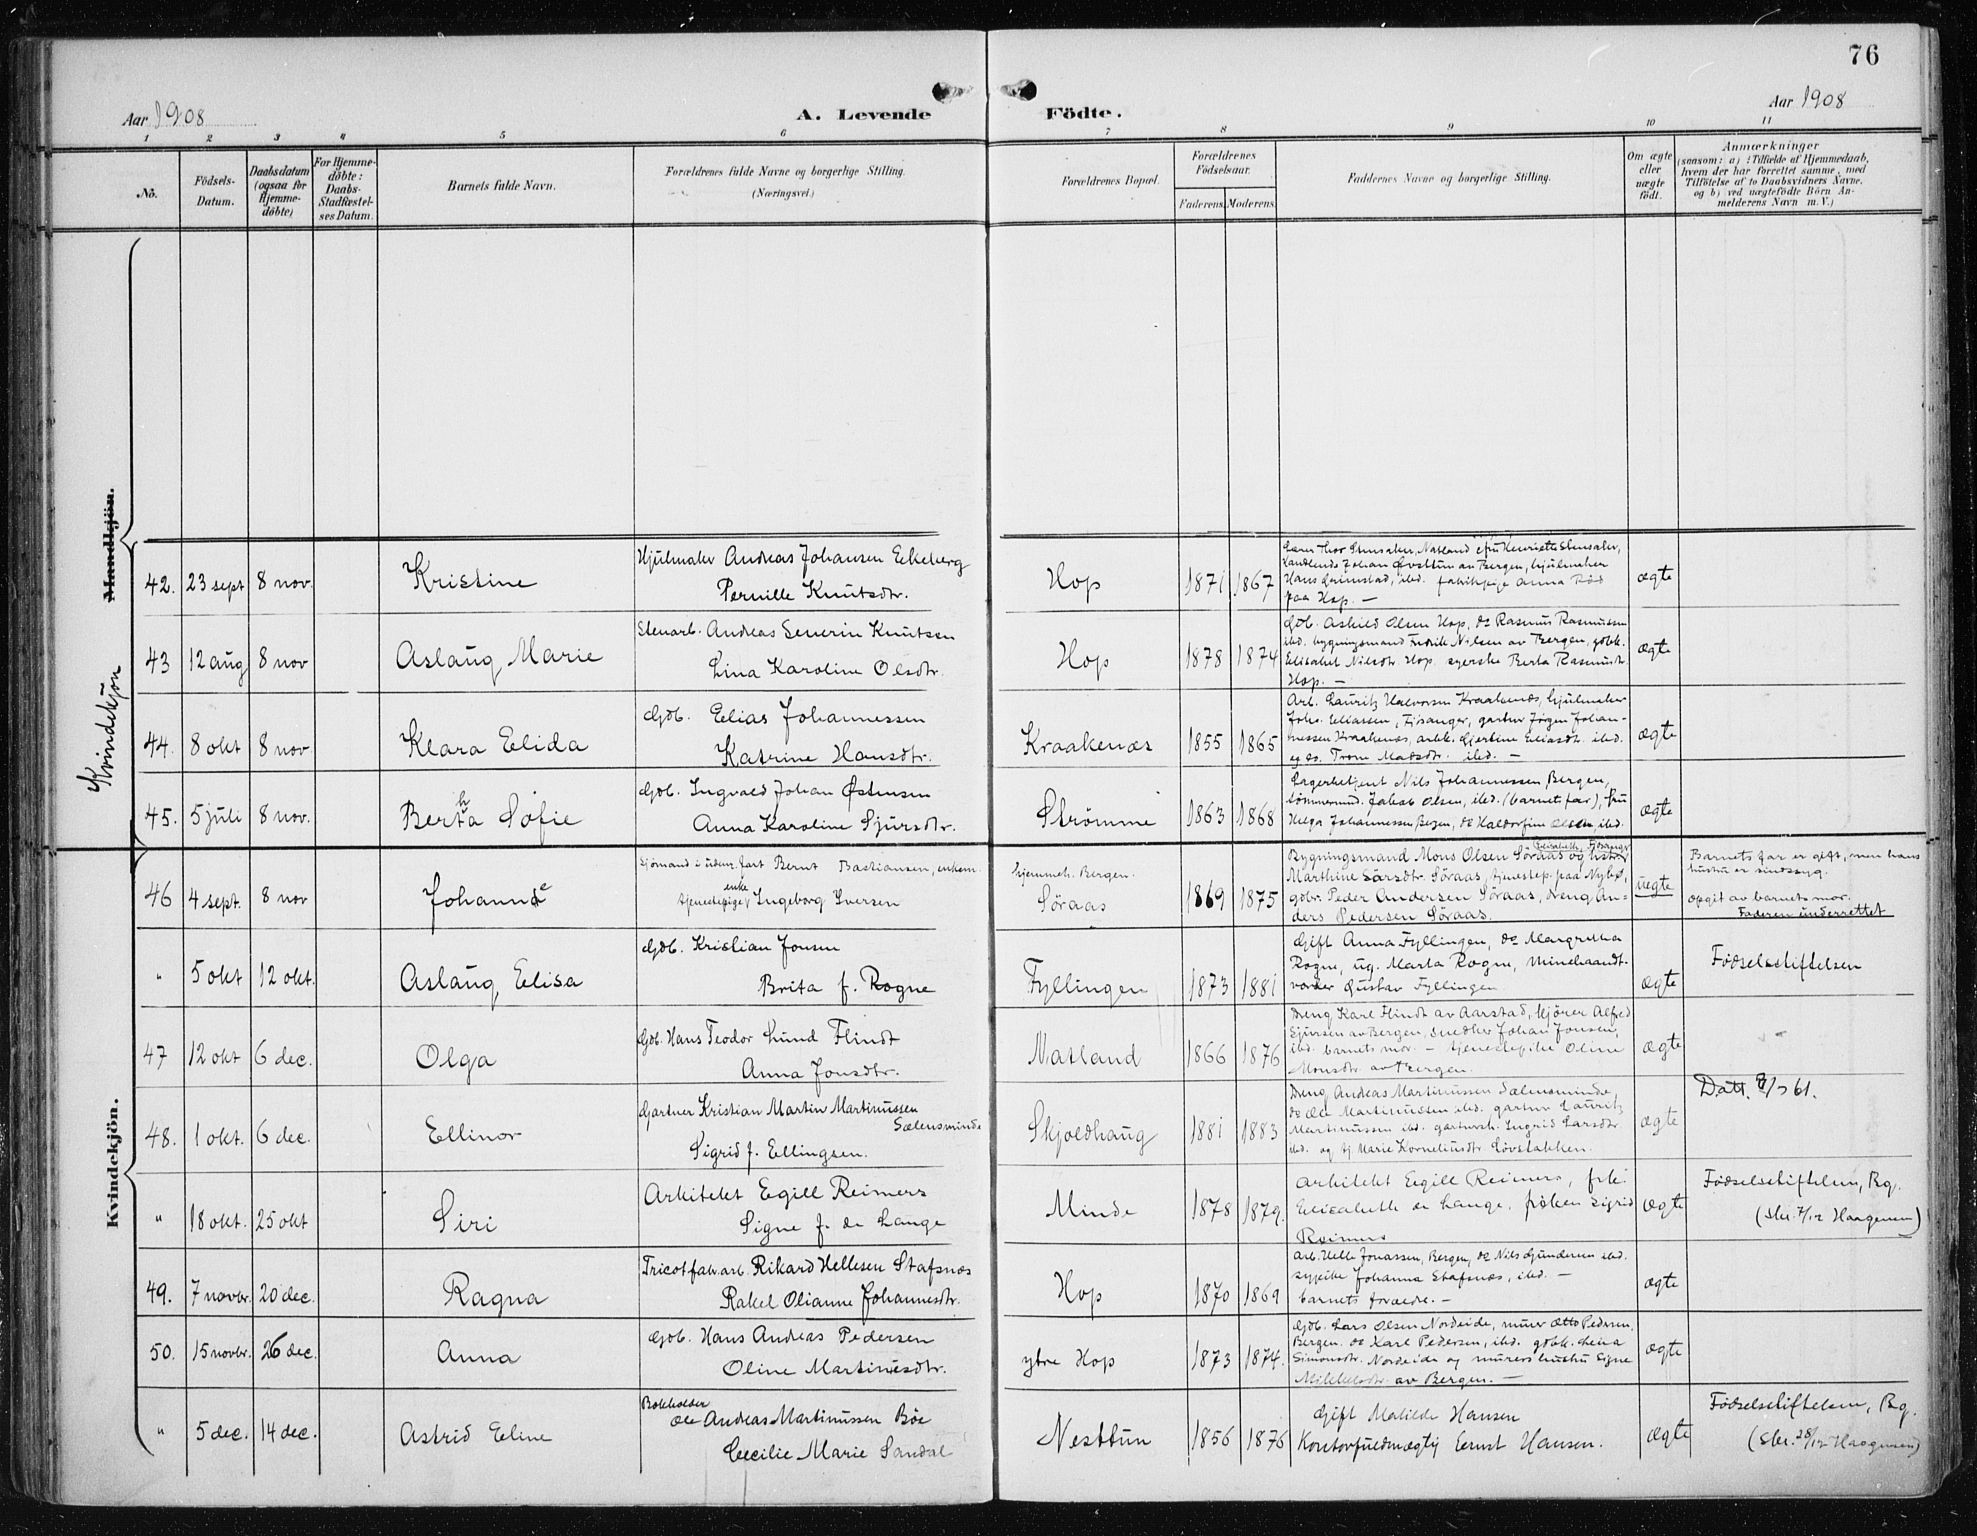 76
Aar 1908
A. Levende Födte.
Aar 1908
1 2 3 4 5 6 7 8 9 10 11
Nö.
Födsels-Datum.
Daabsdatum (ogsaa for Hjemme-döbte)
For Hjemme-döbte: Daabs-Stadfæstel-ses Datum.
Barnets fulde Navn.
Forældrenes fulde Navne og borgerlige Stilling.
(Næringsvei.)
Forældrenes Bopæl.
Forældrenes Födselsaar.
Faderens. Moderens.
Faddernes Navne og borgerlige Stilling.
Om ægte eller uægte födt.
Anmærkninger
(saasom: a) i Tilfælde af Hjemmedaab,
hvem der har forrettet samme, med
Tilföielse af to Daabsvidners Navne,
og b) ved uægtefödte Börn An-
melderens Navn m. V.)
Mandkjön.
Kvindekjön
Kvindekjön.
42. 23 sept 8 nov. Kristine
Hjulmaker Andreas Johansen Eikeberg
Pernille Knutsdtr.
Hop 1871 1867
Hans Grimstad, ibd. fabrikpige Anna
paa Hop. —
ægte
43 12 aug 8 nov Aslaug Marie
Stenarb. Andreas Severin Knutsen
Lina Karoline Olsdtr.
Hop 1878 1874
Gdb. Askild Olsen Hop, do Rasmus Rasmussen
ibd. bygningsmand Fredrik Nilsen av Bergen, gdbk.
Elisabet Nilsdtr. Hop, syerske Berta Rasmusdtr.
Hop. —
ægte
44. 8 okt 8 nov. Klara Elida
Gdb. Elias Johannessen
Katrine Hansdtr.
Kraakenæs 1855 1865
Arb. Lauritz Halvorsen Kraakenæs, hjulmaker
Johs. Eliassen, Fjøsanger, gartner Jørgen Johan-
nessen Kraakenæs, arbk. Gjertine Eliasdtr. ibd.
Madsdtr. ibd. —
ægte
45. 5 juli 8 nov. Bertha Sofie
Gdb. Ingvald Johan Østensen
Anna Karoline Sjursdtr.
Strømme 1863 1868
Lagerbetjent Nils Johannessen Bergen,
tømmermd. Jakob Olsen, ibd. (barnets far), fru
Helga Johannessen Bergen, do Haldorfine Olsen, ibd.
ægte
46 4 sept. 8 nov Johanne
Sjømand i udenr. fart Bernt Bastiansen, enkem.
tjenestepige, enke Ingeborg Iversen
hjemmeh. Bergen.
Søraas 1869 1875
Bygningsmand Mons Olsen Søraas og
Marthine Søraas, tjenestep. paa Nybø,
gdbr. Peder Andersen Søraas, dreng An-
ders Pedersen Søraas.
uegte
Barnets far er gift, men hans
hustru er sindssyg.
opgit av barnets mor.
Faderen underrettet
" 5 okt 12 okt. Aslaug Elisa
Gdb. Kristian Jonsen
Brita f. Rogne
Fyllingen 1873 1881
Gift Anna Fyllingen, do Margretha
Rogne, ug. Marta Rogne,
Gustav Fyllingen
ægte
Fødselsstiftelsen
47 12 okt 6 dec. Olga
Gdb. Hans Teodor Lund Flindt
Anna Jonsdtr.
Natland 1866 1876
Dreng Karl Flindt av Aarstad, kjører Alfred
Sjursen av Bergen, snedker Johan Jonsen,
ibd. barnets mor. — tjenestepike Oline
Monsdtr. av Bergen.
ægte
48. 1 okt. 6 dec. Ellinor
Gartner Kristian Martin Martinussen
Sælensminde
Sigrid f. Ellingsen.
Skjoldhaug 1881 1883
Dreng Andreas Martinussen Sælensminde,
do Ole Martinussen ibd. gartner Lauritz
Martinussen ibd. Ingrid Larsdtr.
ibd. og tj. Marie Korneliusdtr. Løvstakken.
ægte
Datt. 9/7 61.
" 18 okt. 25 okt Siri
Arkitekt Egill Reimers
Signe f. de Lange
Minde 1878 1879.
Arkitekt Egill Reimers, frk.
Elisabeth de Lange, frøken Sigrid
Reimers
ægte
Fødselsstiftelsen, Bg.
(skr. 7/12 Haagensen)
49. 7 novbr. 20 dec. Ragna
Tricotfabr.arb. Rikard Hellesen Stafsnæs
Rakel Olianne Johannesdtr.
Hop 1870 1869
Arb. Helle Jonassen, Bergen, do Nils Gundersen ibd.
sypike Johanna Stafsnæs, ibd. —
barnets forældre. —
ægte
50. 15 novbr. 26 dec. Anna
Gdb. Hans Andreas Pedersen
Oline Martinusdtr.
ytre Hop 1873 1874.
Gdb. Lars Olsen Nordeide, murer Otto Pedersen,
Bergen. do Karl Pedersen, ibd. gdbk.
Simonsdtr. Nordeide og murers hustru Signe
Mikkelsdtr. av Bergen. —
ægte
" 5 dec. 14 dec. Astrid Eline
Bokholder
Ole Andreas Martinussen Bøe
Cecilie Marie Sandal
Nesttun 1856 1876
Gift Matilde Hansen
Kontorfuldmægtig Ernst Hansen.
ægte
Fødselsstiftelsen, Bg.
(skr. 28/12 Haagensen)